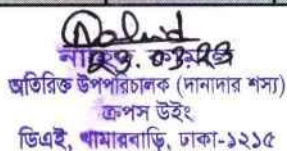 ২৩.০৩.২৩
অতিরিক্ত উপপরিচালক (দানাদার শস্য)
ক্রপস উইং
ডিএই, খামারবাড়ি, ঢাকা-১২১৫